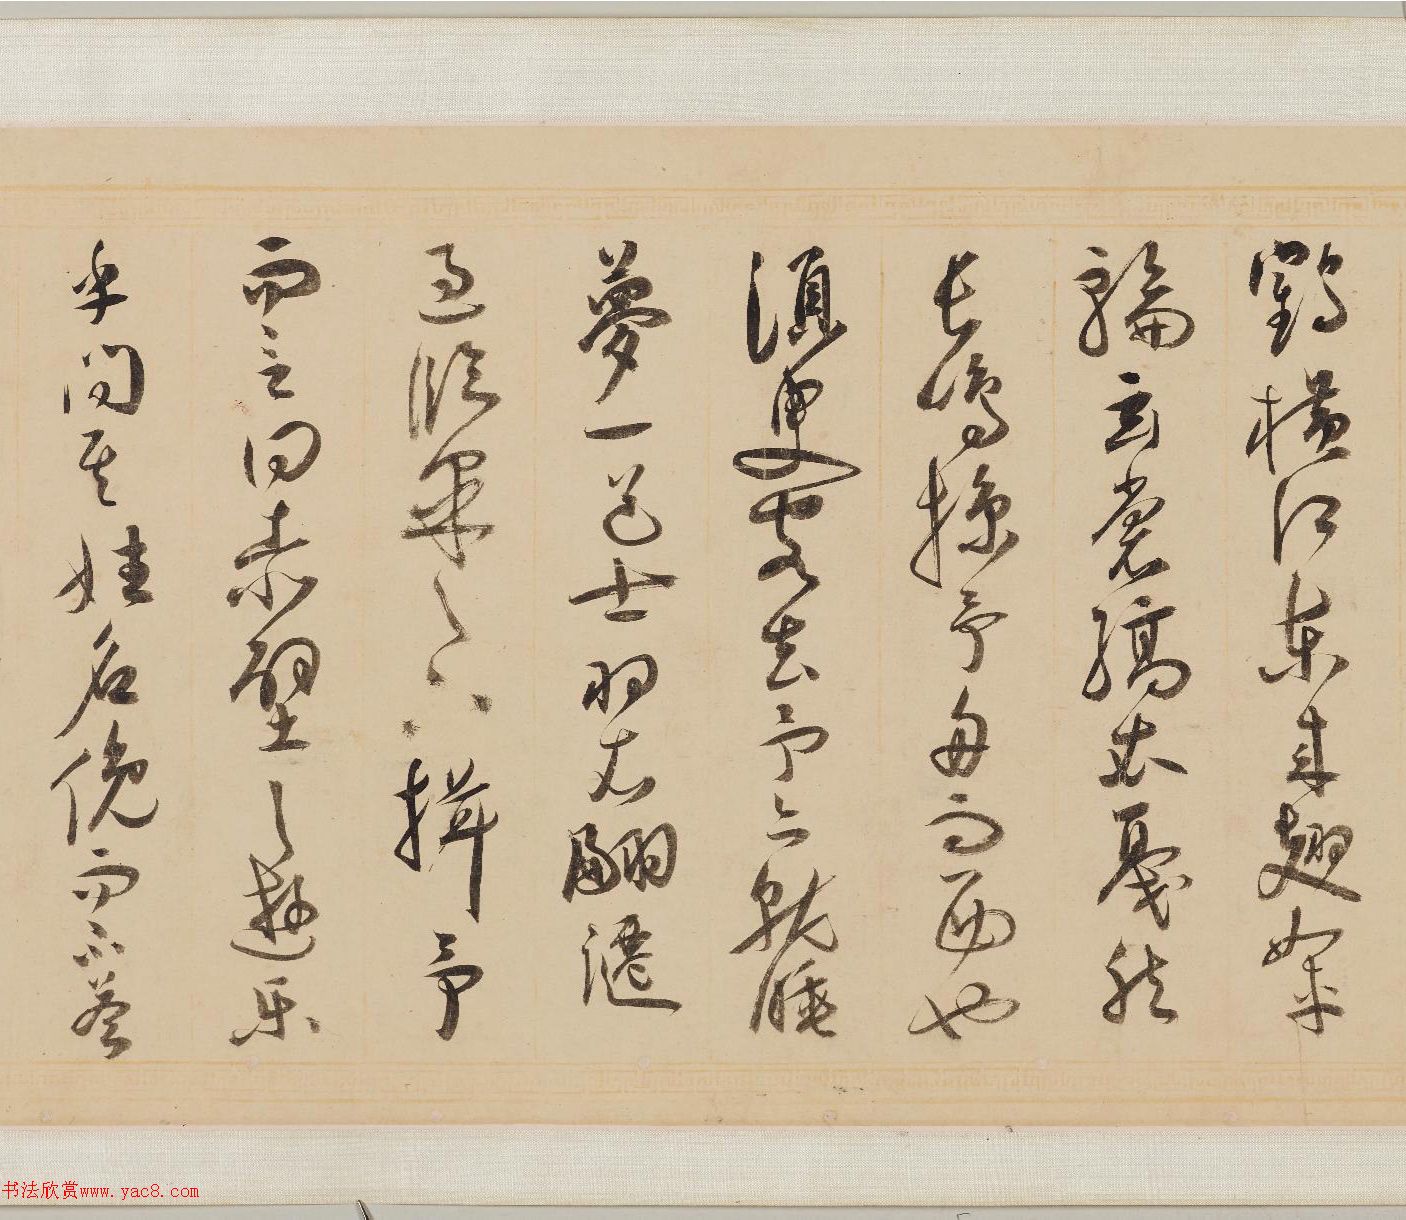 鶴橫江東來翅如車
輪玄裳縞衣戛然
長鳴掠予舟而西也
須臾客去予亦就睡
夢一道士羽衣翩躚
過臨皋之下揖予
而言曰赤壁之遊樂
乎問其姓名俛而不答
书法欣赏www.yac8.com